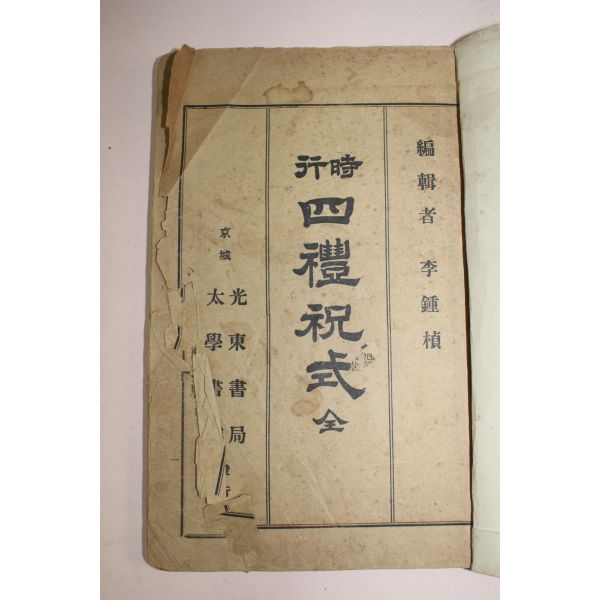 編輯者 李鍾楨
時行
四禮祝式 全
京城
光東書局
太學書
行